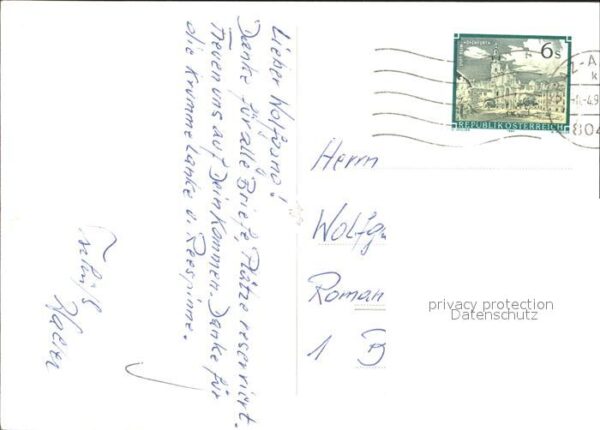 Lieber Wolfgang!
Danke für alle Briefe, Plätze reserviert.
Freuen uns auf Dein Kommen. Danke für
die Krumme Lanke u. Reespinne.
Tschüß
Herrn
Wolfg
Roman
1 B
6s
REPUBLIK ÖSTERREICH
804
privacy protection
Datenschutz